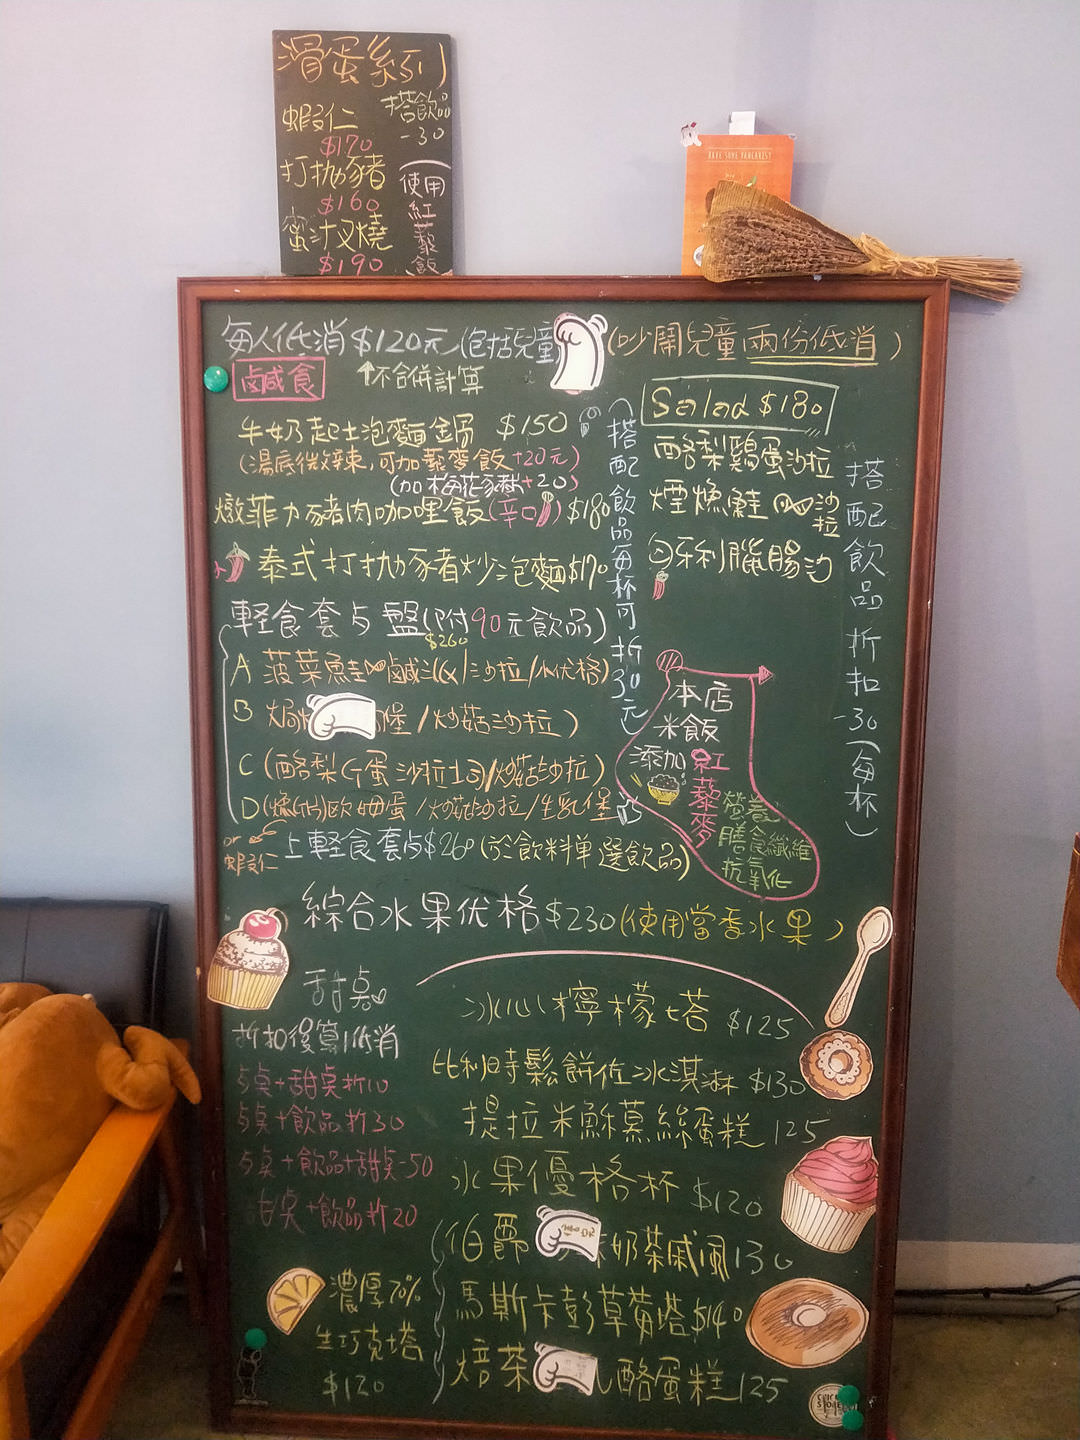 滑蛋系列
蝦仁
$170
打拋豬
$160
蜜汁叉燒
$190
搭飲品
-30
(使用紅藜飯
每人低消$120元(包括兒童
(吵鬧兒童兩份低消)
↑不合併計算
鹹食
牛奶起士泡麵鍋 $150
(湯底微辣,可加藜麥飯+20元)
(加梅花豬+20)
燉菲力豬肉咖哩飯(辛口)$180
泰式打拋豬炒泡麵$170
(搭配飲品每杯可折30元)
Salad $180
酪梨雞蛋沙拉
煙燻鮭沙拉
匈牙利臘腸沙
搭配飲品折扣-30(每杯)
軽食套餐盤(附90元飲品)
$260
A 菠菜鮭鹹派&/沙拉/水优格)
B 焗烤堡/炒菇沙拉)
C (酪梨 蛋沙拉土司/炒菇沙拉)
D (燻鮭)歐姆蛋/炒菇沙拉/生乳堡
or
蝦仁
上軽食套餐$260(於飲料單選飲品)
本店
米飯
添加紅藜麥
營養
膳食纖維
抗氧化
綜合水果优格$230(使用當季水果)
甜桌
折扣後算低消
餐桌+甜桌折10
餐桌+飲品折30
餐桌+飲品+甜桌-50
甜桌+飲品折20
冰心檸檬塔 $125
比利時鬆餅佐冰淇淋 $130
提拉米酥慕絲蛋糕 125
水果優格杯 $120
伯爵奶茶戚風130
馬斯卡彭草莓塔$140
焙茶酪蛋糕125
濃厚70%
生巧克力塔
$120